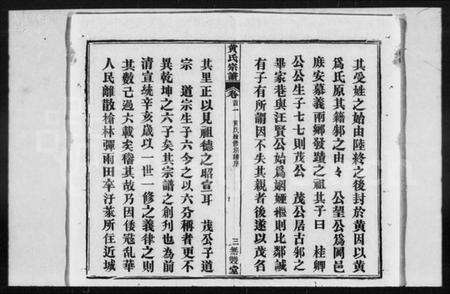 其受姓之始由陸終之後封於黃因以黃
爲氏原其籍鄒之由 公望公爲岡邑
庶安慕義兩鄉發蹟之祖其子曰 桂卿
公公生子七七則茂公 茂公居古鄒之
畢家巷與汪賢公始爲姻婭繼則比鄰誠
有子有所謂因不失其親者後遂以茂名
黃氏宗譜 卷首一 黃氏續修宗譜序 三 無雙堂
其里正以見祖德之昭宣耳 茂公子道
宗 道宗生子六今之以六分稱者更不
異乾坤之六子矣其宗譜之創刋也爲前
清宣統辛亥歲以一世一修之義律之則
其數己過大載矣稽其故乃因倭寇亂華
人民離散槍林彈雨田卒汙萊所住近城